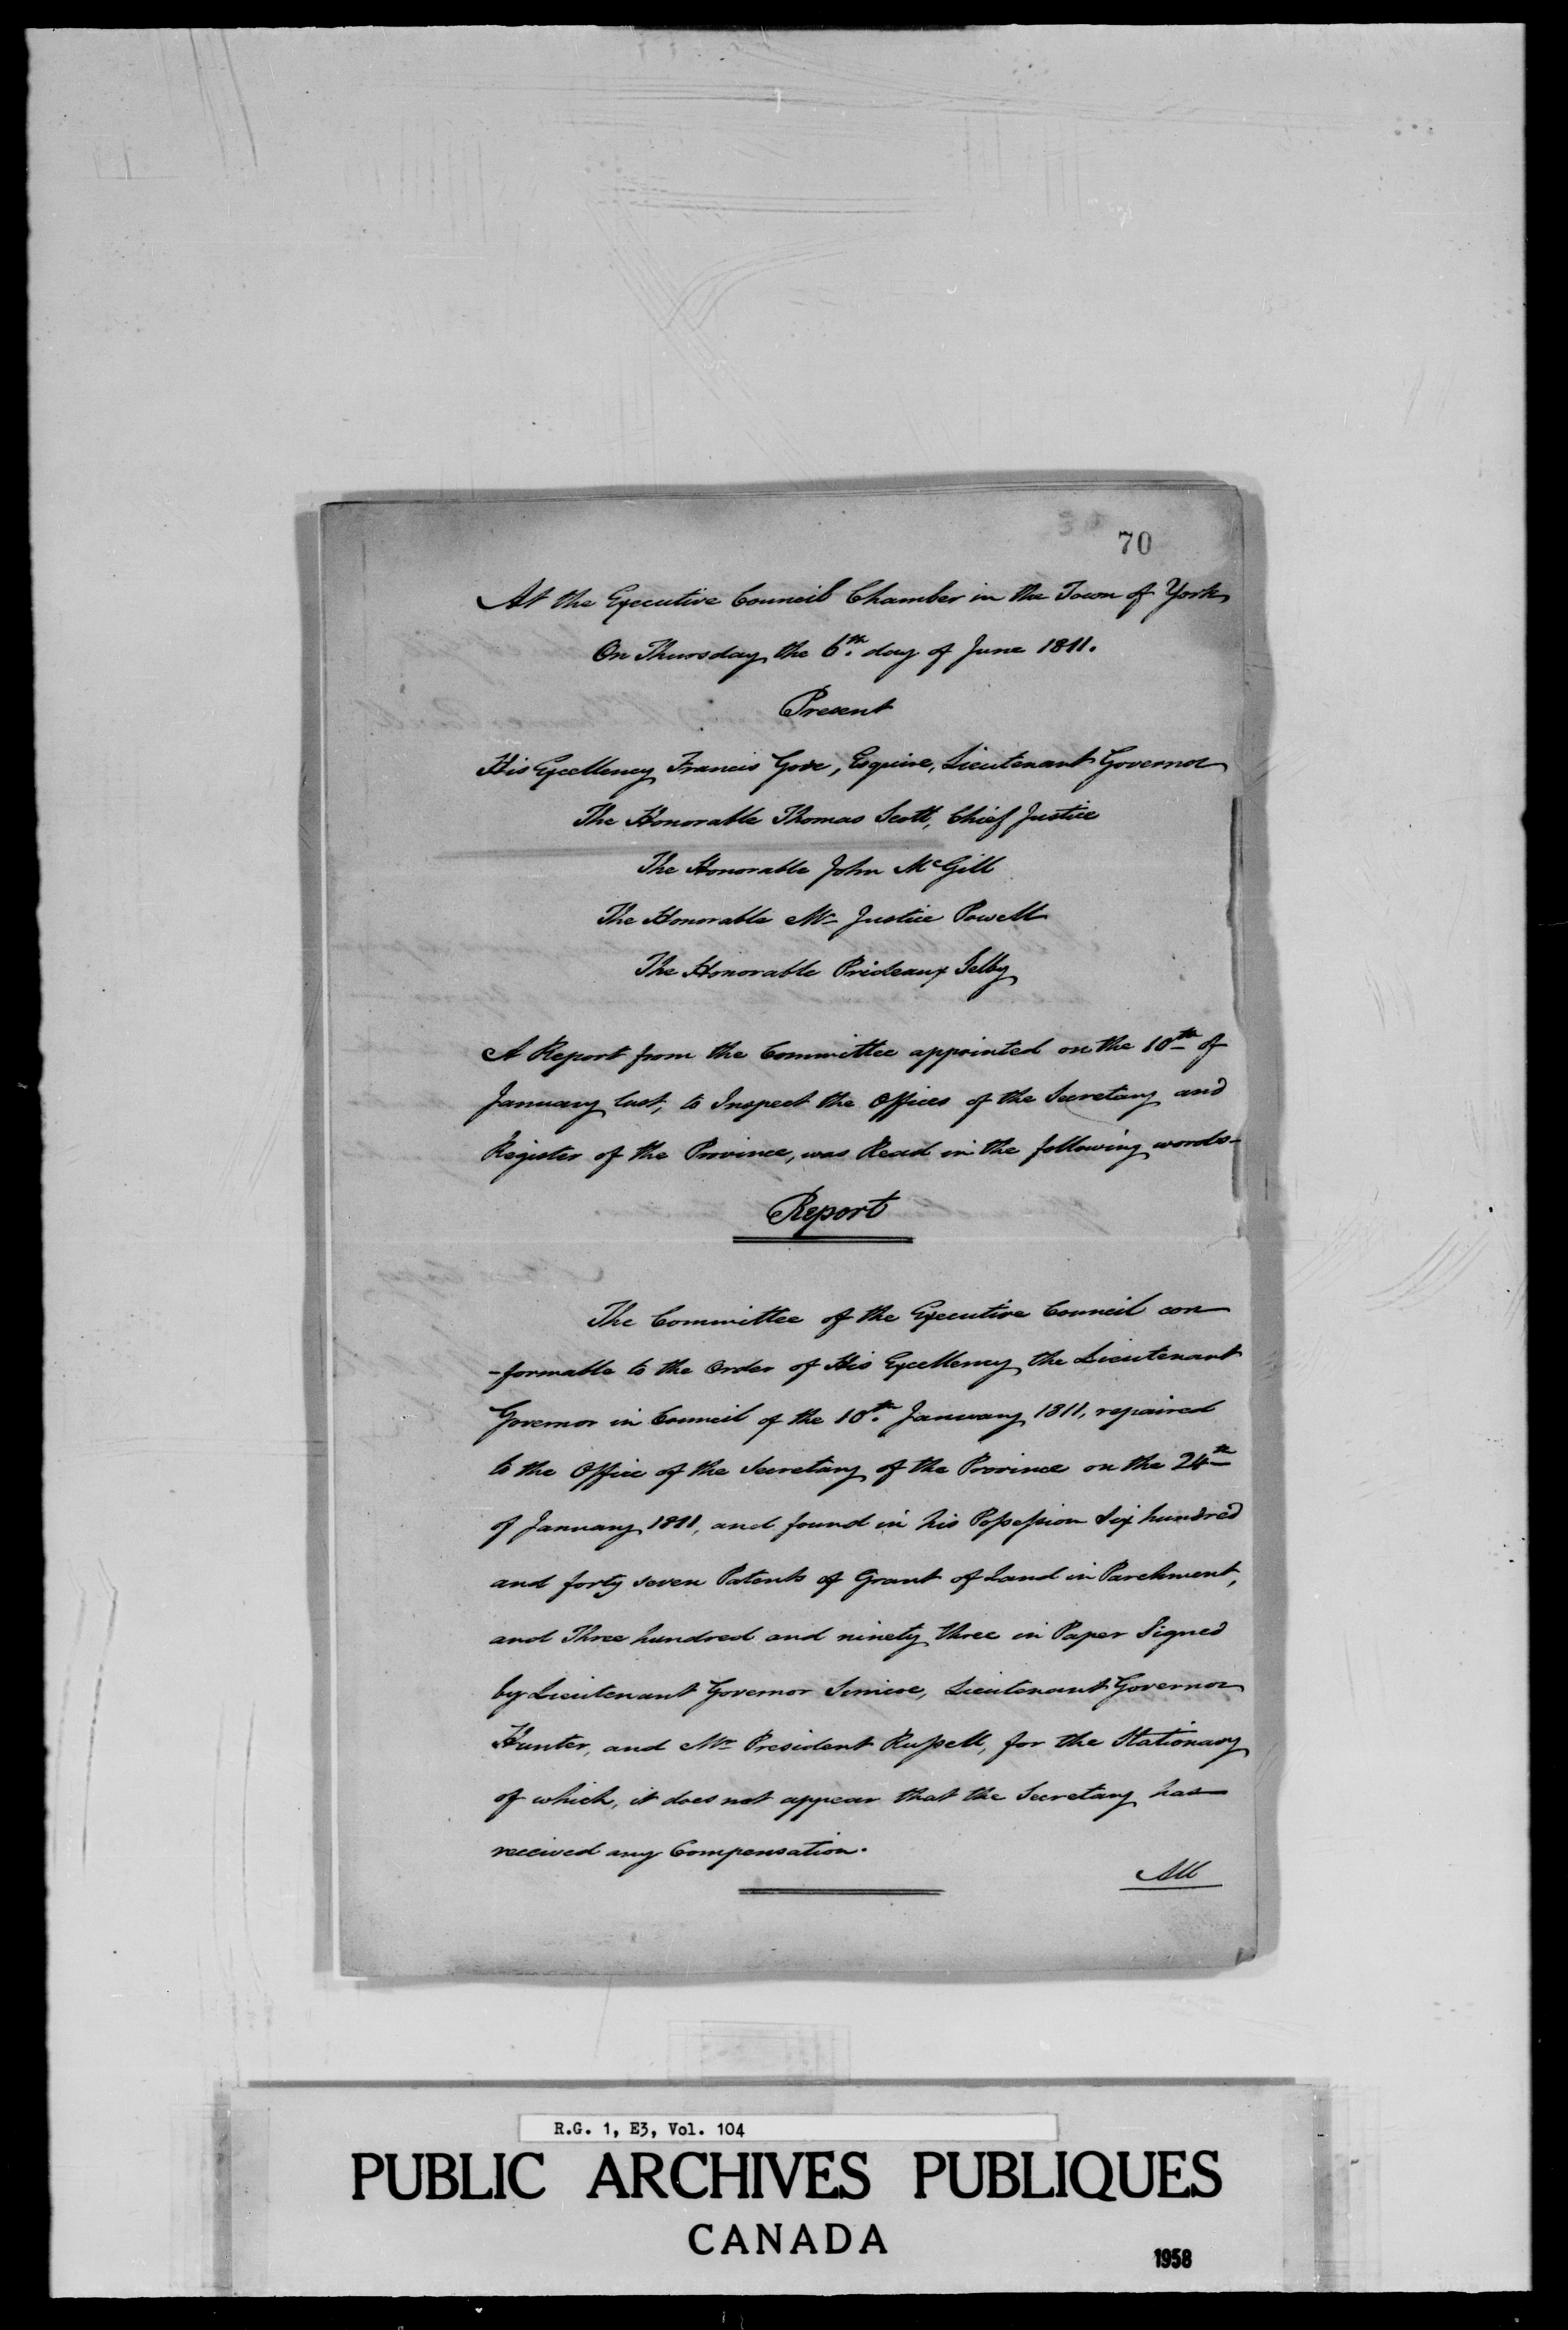 70
At the Executive Council Chamber in the Town of York
On Thursday the 6th. day of June 1811.
Present
His Excellency Francis Gore, Esquire, Lieutenant Governor
The Honorable Thomas Scott, Chief Justice
The Honorable John McGill
The Honorable Mr Justice Powell
The Honorable Prideaux Selby
A Report from the Committee appointed on the 10th of
January last, to Inspect the Offices of the Secretary and
Register of the Province, was Read in the following words-
Report
The Committee of the Executive Council con
-formable to the Order of His Excellency the Lieutenant
Governor in Council of the 10th. January 1811, repaired
to the Office of the Secretary of the Province on the 24th
of January 1811, and found in his Possession Six hundred
and forty seven Patents of Grant of Land in Parchment,
and Three hundred and ninety three in Paper Signed
by Lieutenant Governor Simcoe, Lieutenant Governor
Hunter, and Mr President Russell, for the Stationary
of which, it does not appear that the Secretary has
received any Compensation.
All
R.G. 1, E3, Vol. 104
PUBLIC ARCHIVES PUBLIQUES
CANADA
1958